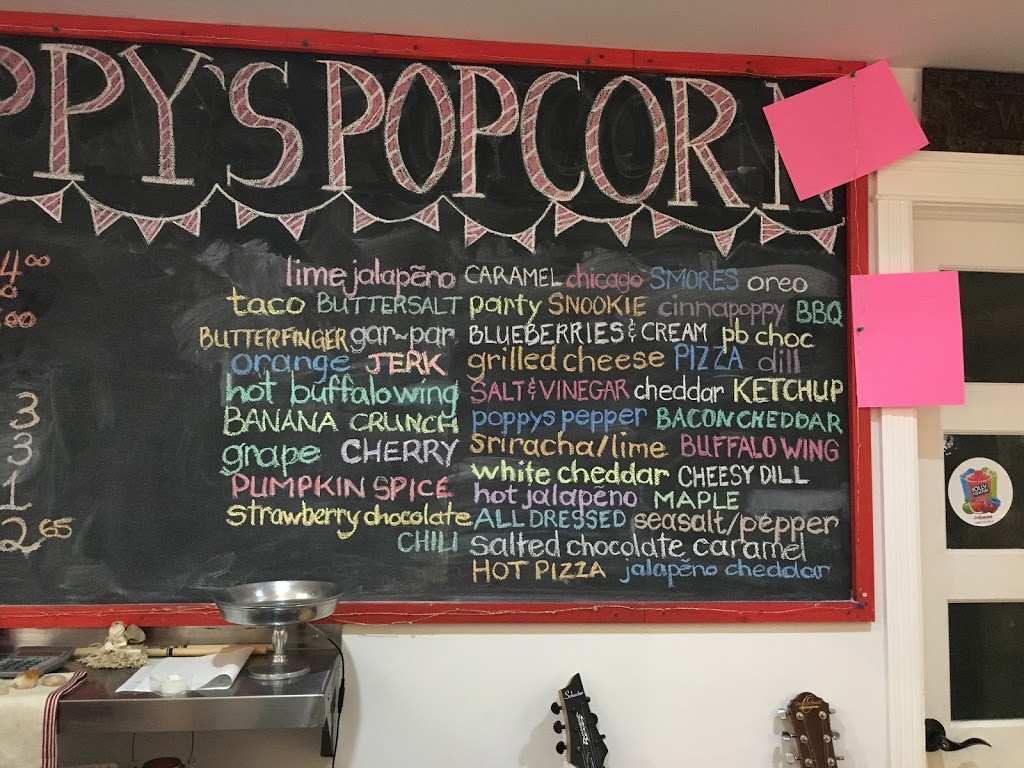 PPY'S POPCORN
4.00
.00
3
3
1
2.65
lime jalapeño CARAMEL chicago SMORES oreo
taco BUTTERSALT party SNOOKIE cinnapoppy BBQ
BUTTERFINGER gar~par BLUEBERRIES & CREAM pb choc
orange JERK grilled cheese PIZZA dill
hot buffalo wing SALT & VINEGAR cheddar KETCHUP
BANANA CRUNCH poppys pepper BACON CHEDDAR
grape CHERRY sriracha/lime BUFFALO WING
white cheddar CHEESY DILL
PUMPKIN SPICE hot jalapeño MAPLE
strawberry chocolate ALL DRESSED seasalt/pepper
CHILI salted chocolate caramel
HOT PIZZA jalapeño cheddar
W
JOLLY
Schecter